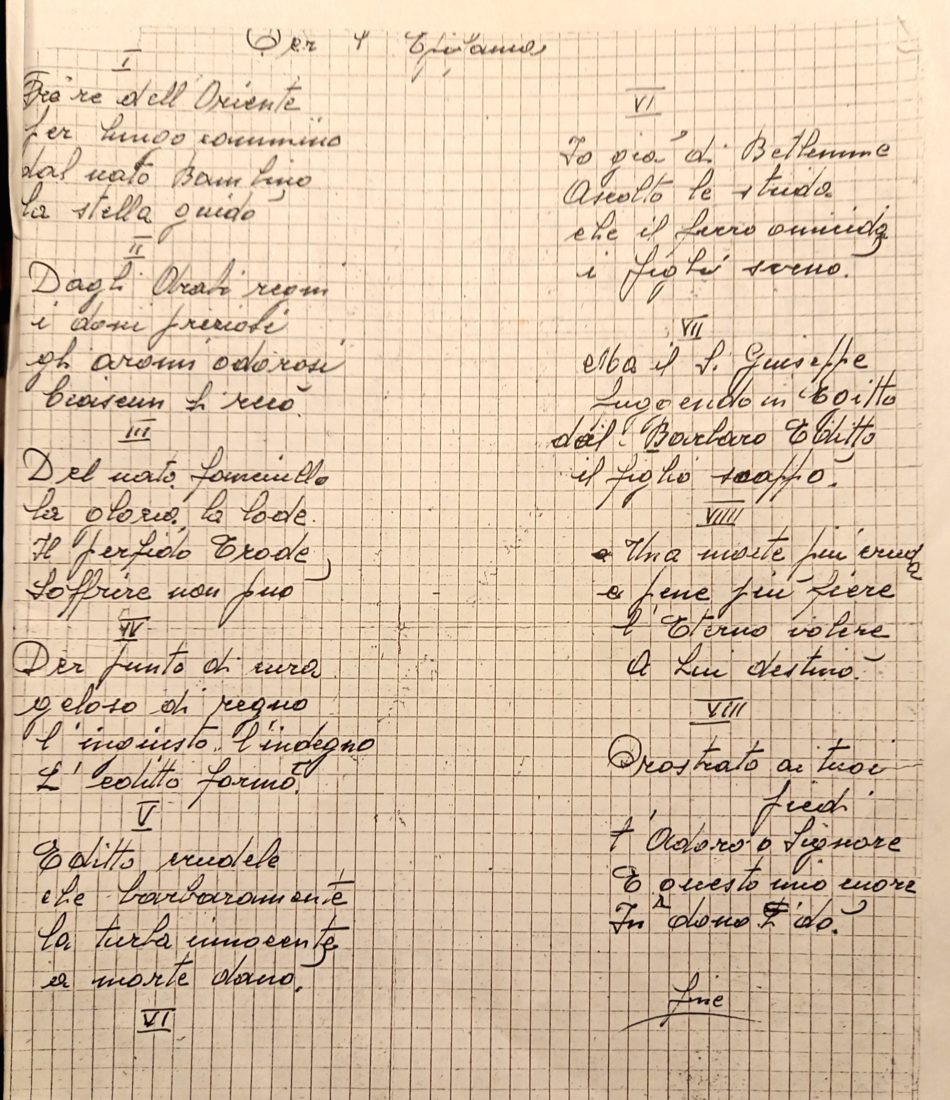 Per l' Epifania
I
Tre re dell Oriente
per lungo cammino
dal nato Bambino
la stella guidò
II
Dagli Arabi regni
i doni preziosi
gli aromi odorosi
Ciascun Li recò.
III
Del nato fanciullo
la gloria, la lode.
Il perfido Erode
Soffrire non può
IV
Per punto di cura
geloso di regno
l'ingiusto. l'indegno
L' editto formò.
V
Editto crudele
che barbaramente
la turba innocente
a morte danò.
VI
VI
Io già di Betlemme
Ascolto le strida
che il ferro omicida
i figli svenò.
VII
Ma il S. Giuseppe
fuggendo in Egitto
dal Barbaro Editto
il figlio scappò.
VIIII
a Una morte più cruda
a pene più fiere
l'Eterno volere
A Lui destinò.
VIII
Prostrato ai tuoi
piedi
t'Adoro o Signore
E questo mio cuore
In dono T'dò.
fine